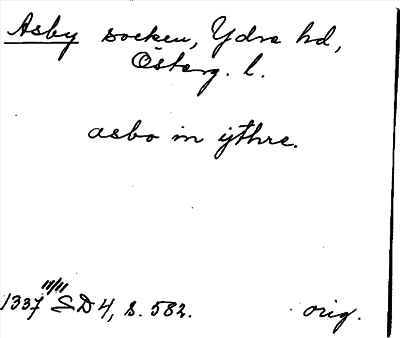 Asby socken, Ydre hd,
Österg. l.
asbo in ythre.
11/11
1337 SD 4, s. 582.
orig.